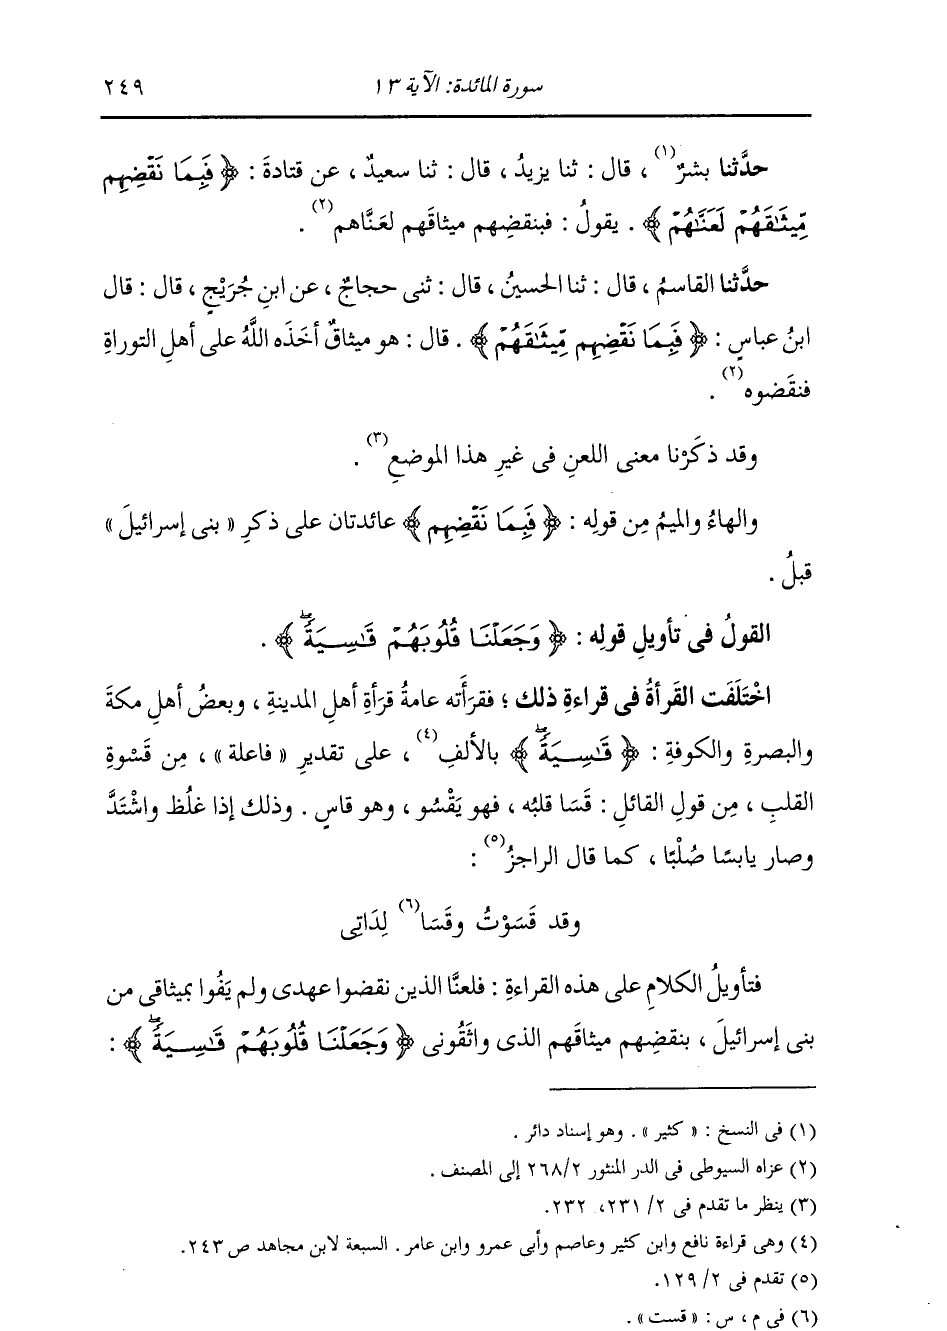 سورة المائدة: الآية ١٣ ٢٤٩
حدَّثنا بشرٌ(١) ، قال : ثنا يزيدُ ، قال : ثنا سعيدٌ ، عن قتادةَ : ﴿ فَبِمَا نَقْضِهِم
مِّيثَٰقَهُمْ لَعَنَّٰهُمْ ﴾ . يقولُ : فبنقضِهم ميثاقَهم لعَنَّاهم(٢) .
حدَّثنا القاسمُ ، قال : ثنا الحسينُ ، قال : ثنى حجاجٌ ، عن ابنِ جُرَيْجٍ ، قال : قال
ابنُ عباسٍ : ﴿ فَبِمَا نَقْضِهِم مِّيثَٰقَهُمْ ﴾ . قال : هو ميثاقٌ أخَذَه اللَّهُ على أهلِ التوراةِ
فنقَضوه(٢) .
وقد ذكَرْنا معنى اللعنِ فى غيرِ هذا الموضعِ(٣) .
والهاءُ والميمُ مِن قولِه : ﴿ فَبِمَا نَقْضِهِم ﴾ عائدتان على ذكرِ « بنى إسرائيلَ »
قبلُ .
القولُ فى تأويلِ قولِه : ﴿ وَجَعَلْنَا قُلُوبَهُمْ قَٰسِيَةًۖ ﴾ .
اخْتَلَفَت القَرأةُ فى قراءةِ ذلك ؛ فقرَأَته عامةُ قرَأةِ أهلِ المدينةِ ، وبعضُ أهلِ مكةَ
والبصرةِ والكوفةِ : ﴿ قَٰسِيَةًۖ ﴾ بالألفِ(٤) ، على تقديرِ « فاعلة » ، مِن قَسْوةِ
القلبِ ، مِن قولِ القائلِ : قَسَا قلبُه ، فهو يَقْسُو ، وهو قاسٍ . وذلك إذا غلُظ واشْتَدَّ
وصار يابسًا صُلْبًا ، كما قال الراجزُ(٥) :
وقد قَسَوْتُ وقَسَا(٦) لِدَاتِى
فتأويلُ الكلامِ على هذه القراءةِ : فلعنَّا الذين نقضوا عهدى ولم يَفُوا بميثاقى من
بنى إسرائيلَ ، بنقضِهم ميثاقَهم الذى واثَقُونى ﴿ وَجَعَلْنَا قُلُوبَهُمْ قَٰسِيَةًۖ ﴾ :
(١) فى النسخ : « كثير » . وهو إسناد دائر .
(٢) عزاه السيوطى فى الدر المنثور ٢/ ٢٦٨ إلى المصنف .
(٣) ينظر ما تقدم فى ٢/ ٢٣١، ٢٣٢.
(٤) وهى قراءة نافع وابن كثير وعاصم وأبى عمرو وابن عامر . السبعة لابن مجاهد ص ٢٤٣.
(٥) تقدم فى ٢/ ١٢٩.
(٦) فى م ، س : « قست » .